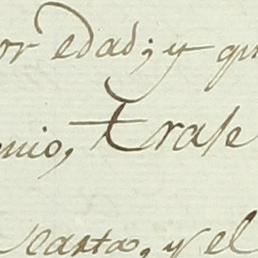 or edad; y qu
nio, trase
casta, y el